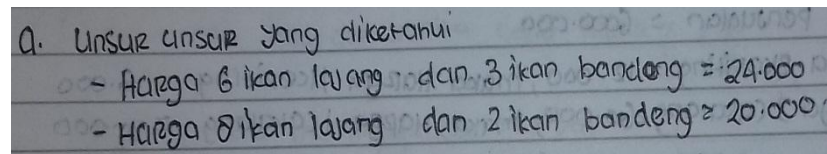 a. Unsur unsur yang diketahui
- Harga 6 ikan layang dan 3 ikan bandeng = 24.000
- Harga 8 ikan layang dan 2 ikan bandeng = 20.000